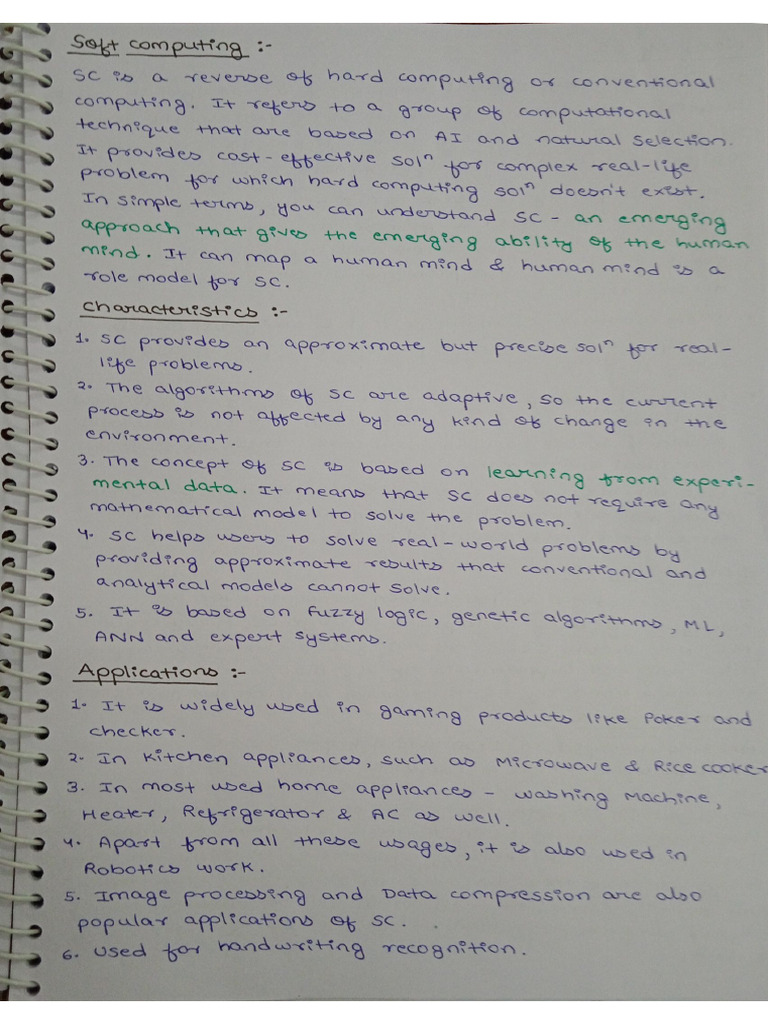 Soft computing :-
SC is a reverse of hard computing or conventional
computing. It refers to a group of computational
technique that are based on AI and natural selection.
It provides cost-effective solⁿ for complex real-life
problem for which hard computing solⁿ doesn't exist.
In simple terms, you can understand SC - an emerging
approach that gives the emerging ability of the human
mind. It can map a human mind & human mind is a
role model for SC.
Characteristics :-
1. SC provides an approximate but precise solⁿ for real-
life problems.
2. The algorithms of SC are adaptive, so the current
process is not affected by any kind of change in the
environment.
3. The concept of SC is based on learning from experi-
mental data. It means that SC does not require any
mathematical model to solve the problem.
4. SC helps users to solve real-world problems by
providing approximate results that conventional and
analytical models cannot solve.
5. It is based on Fuzzy logic, genetic algorithms, ML,
ANN and expert systems.
Applications :-
1. It is widely used in gaming products like Poker and
checker.
2. In kitchen appliances, such as Microwave & Rice cooker
3. In most used home appliances - washing Machine,
Heater, Refrigerator & AC as well.
4. Apart from all these usages, it is also used in
Robotics work.
5. Image processing and Data compression are also
popular applications of SC.
6. used for handwriting recognition.